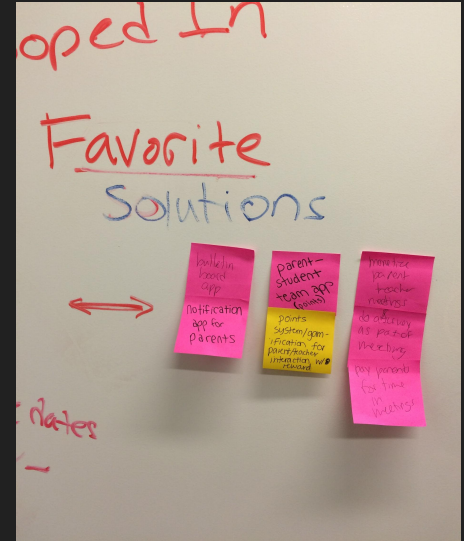 oped In
Favorite
Solutions
bulletin
board
app
notification
app for
parents
parent-
student
team app
(points)
points
system/gam-
ification for
parent/teacher
interaction w/
reward
parent
teacher
do activity
as part of
meeting
pay parents
for time
in
meetings
dates